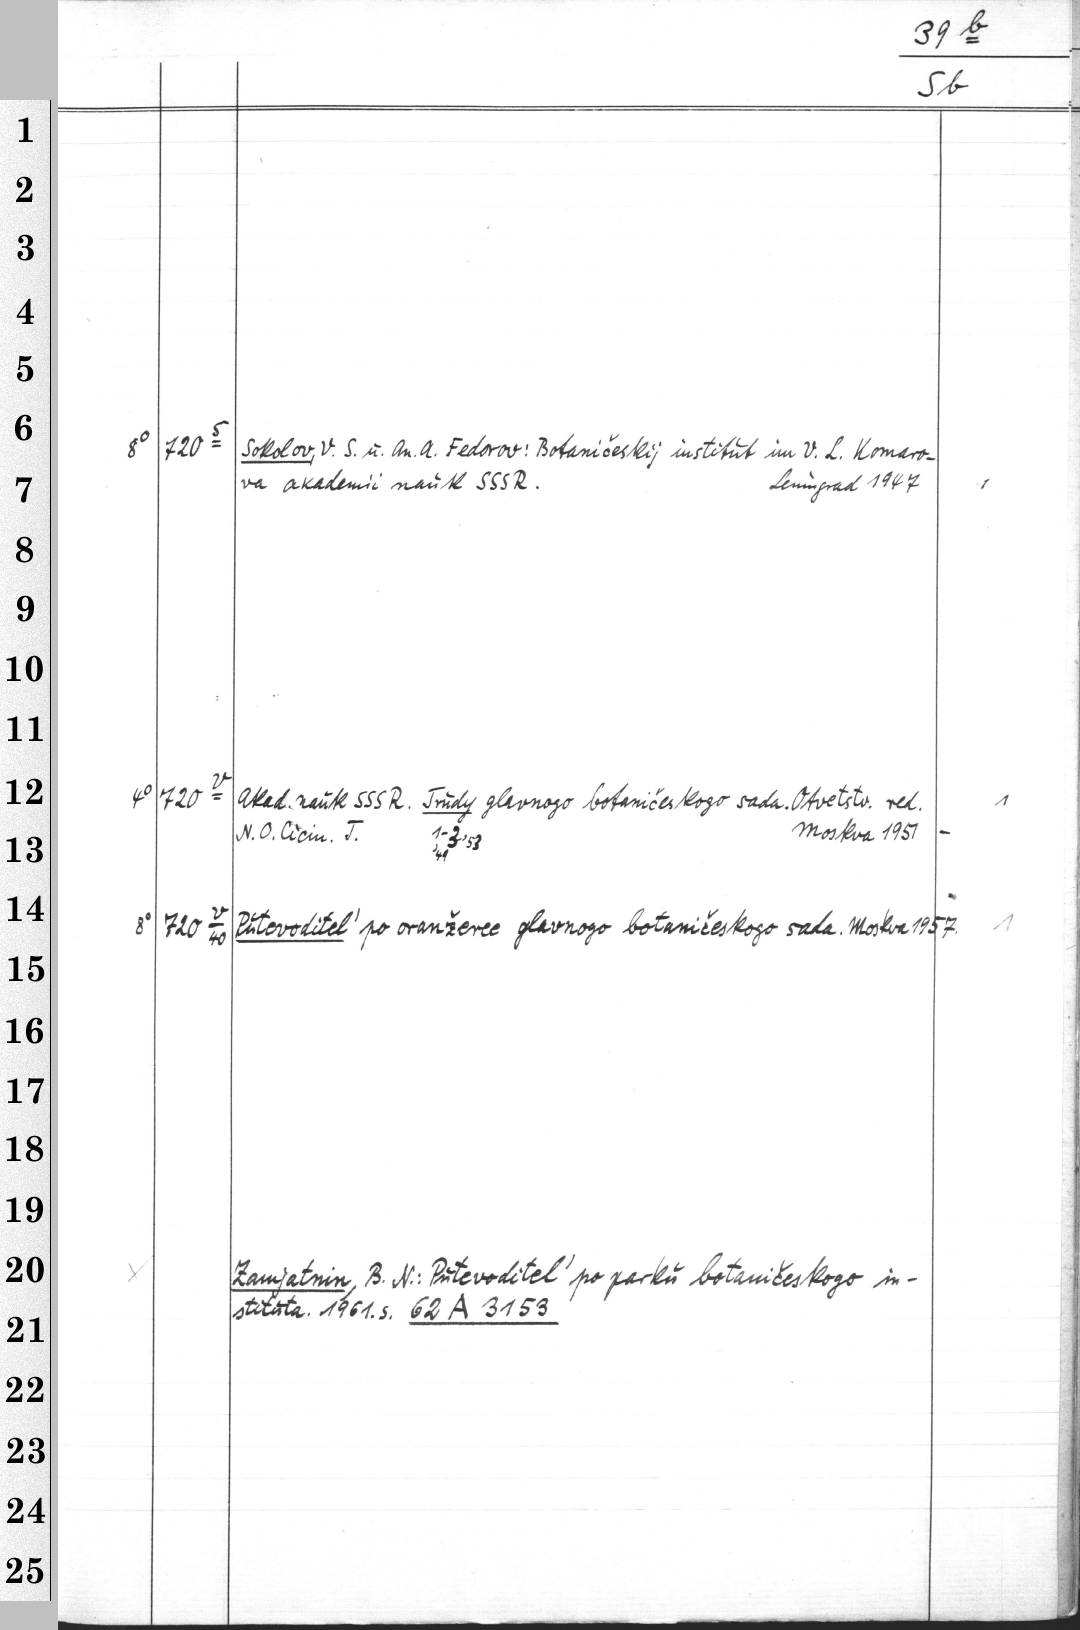 39 b
Sb
1
2
3
4
5
6
8° 720 5 Sokolov, V. S. u. An. A. Fedorov: Botaničeskij institut im V. L. Komaro-
7
va akademii nauk SSSR. Leningrad 1947 1
8
9
10
11
12
4° 720 v Akad. nauk SSSR. Trudy glavnogo botaničeskogo sada. Otvetstv. red. 1
13
N. O. Cicin. T. 1-3, '49 '53 Moskva 1951 –
14
8° 720 v/40 Putevoditel' po oranžeree glavnogo botaničeskogo sada. Moskva 1957. 1
15
16
17
18
19
20
Zamjatnin, B. N.: Putevoditel' po parku botaničeskogo in-
21
stituta. 1961. s. 62 A 3153
22
23
24
25